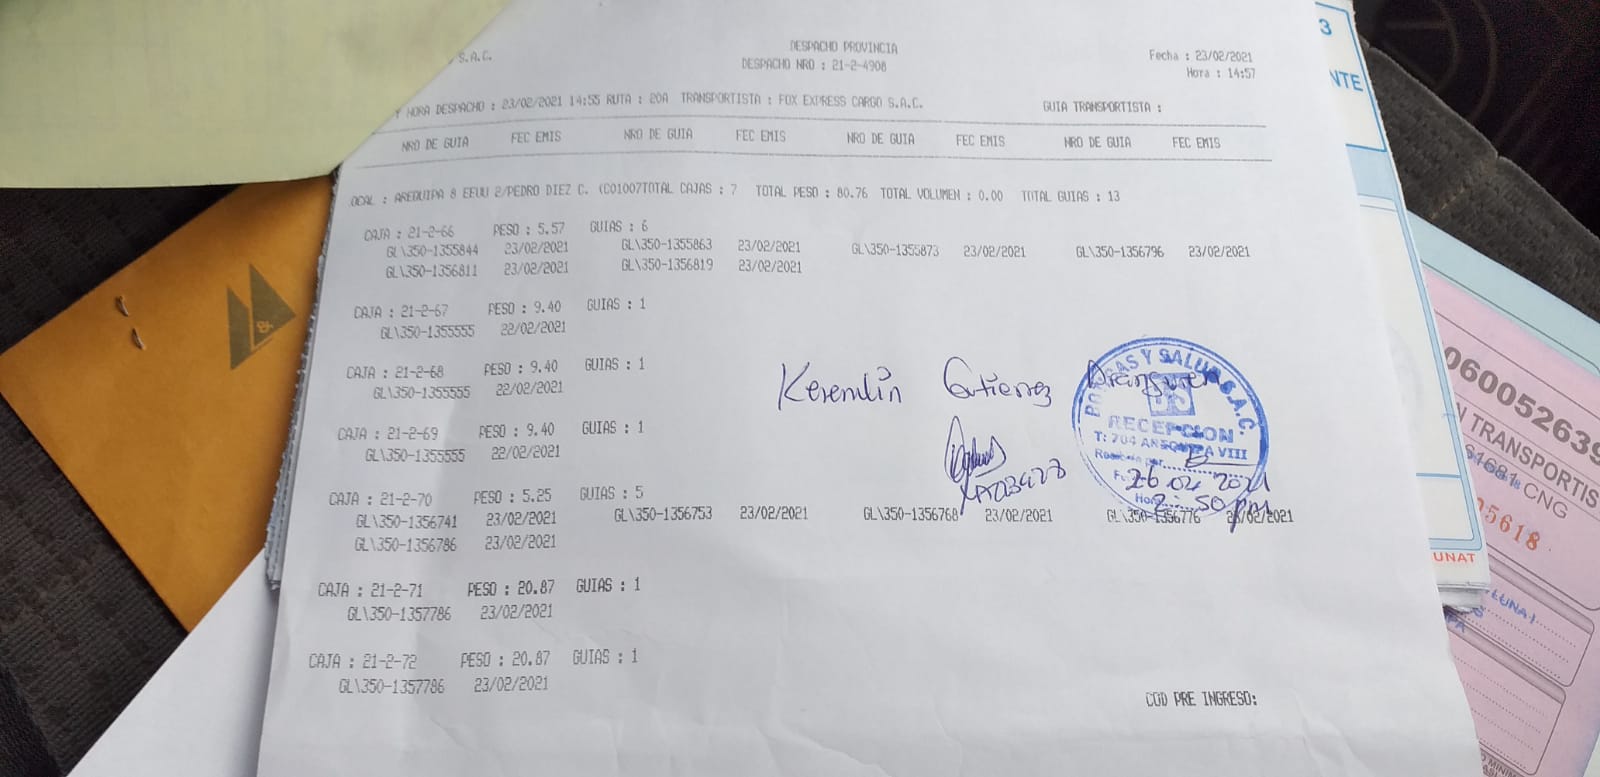 S.A.C.
DESPACHO PROVINCIA
DESPACHO NRO : 21-2-4908
Fecha : 23/02/2021
Hora : 14:57
Y HORA DESPACHO : 23/02/2021 14:55 RUTA : 20A TRANSPORTISTA : FOX EXPRESS CARGO S.A.C. GUIA TRANSPORTISTA :
NRO DE GUIA FEC EMIS NRO DE GUIA FEC EMIS NRO DE GUIA FEC EMIS NRO DE GUIA FEC EMIS
OCAL : AREQUIPA 8 EEUU 2/PEDRO DIEZ C. (C01007TOTAL CAJAS : 7 TOTAL PESO : 80.76 TOTAL VOLUMEN : 0.00 TOTAL GUIAS : 13
CAJA : 21-2-66 PESO : 5.57 GUIAS : 6
GL\350-1355844 23/02/2021 GL\350-1355863 23/02/2021 GL\350-1355873 23/02/2021 GL\350-1356796 23/02/2021
GL\350-1356811 23/02/2021 GL\350-1356819 23/02/2021
CAJA : 21-2-67 PESO : 9.40 GUIAS : 1
GL\350-1355555 22/02/2021
CAJA : 21-2-68 PESO : 9.40 GUIAS : 1
GL\350-1355555 22/02/2021
CAJA : 21-2-69 PESO : 9.40 GUIAS : 1
GL\350-1355555 22/02/2021
CAJA : 21-2-70 PESO : 5.25 GUIAS : 5
GL\350-1356741 23/02/2021 GL\350-1356753 23/02/2021 GL\350-1356768 23/02/2021 GL\350-1356776 23/02/2021
GL\350-1356786 23/02/2021
CAJA : 21-2-71 PESO : 20.87 GUIAS : 1
GL\350-1357786 23/02/2021
CAJA : 21-2-72 PESO : 20.87 GUIAS : 1
GL\350-1357786 23/02/2021
COD PRE INGRESO:
Keremlin Gutierrez
RECEPCION
T: 704 AREQUIPA VIII
26 02 2021
2:50 pm
&
3
NTE
UNAT
060052639
N TRANSPORTIS
61681 CNG
5618